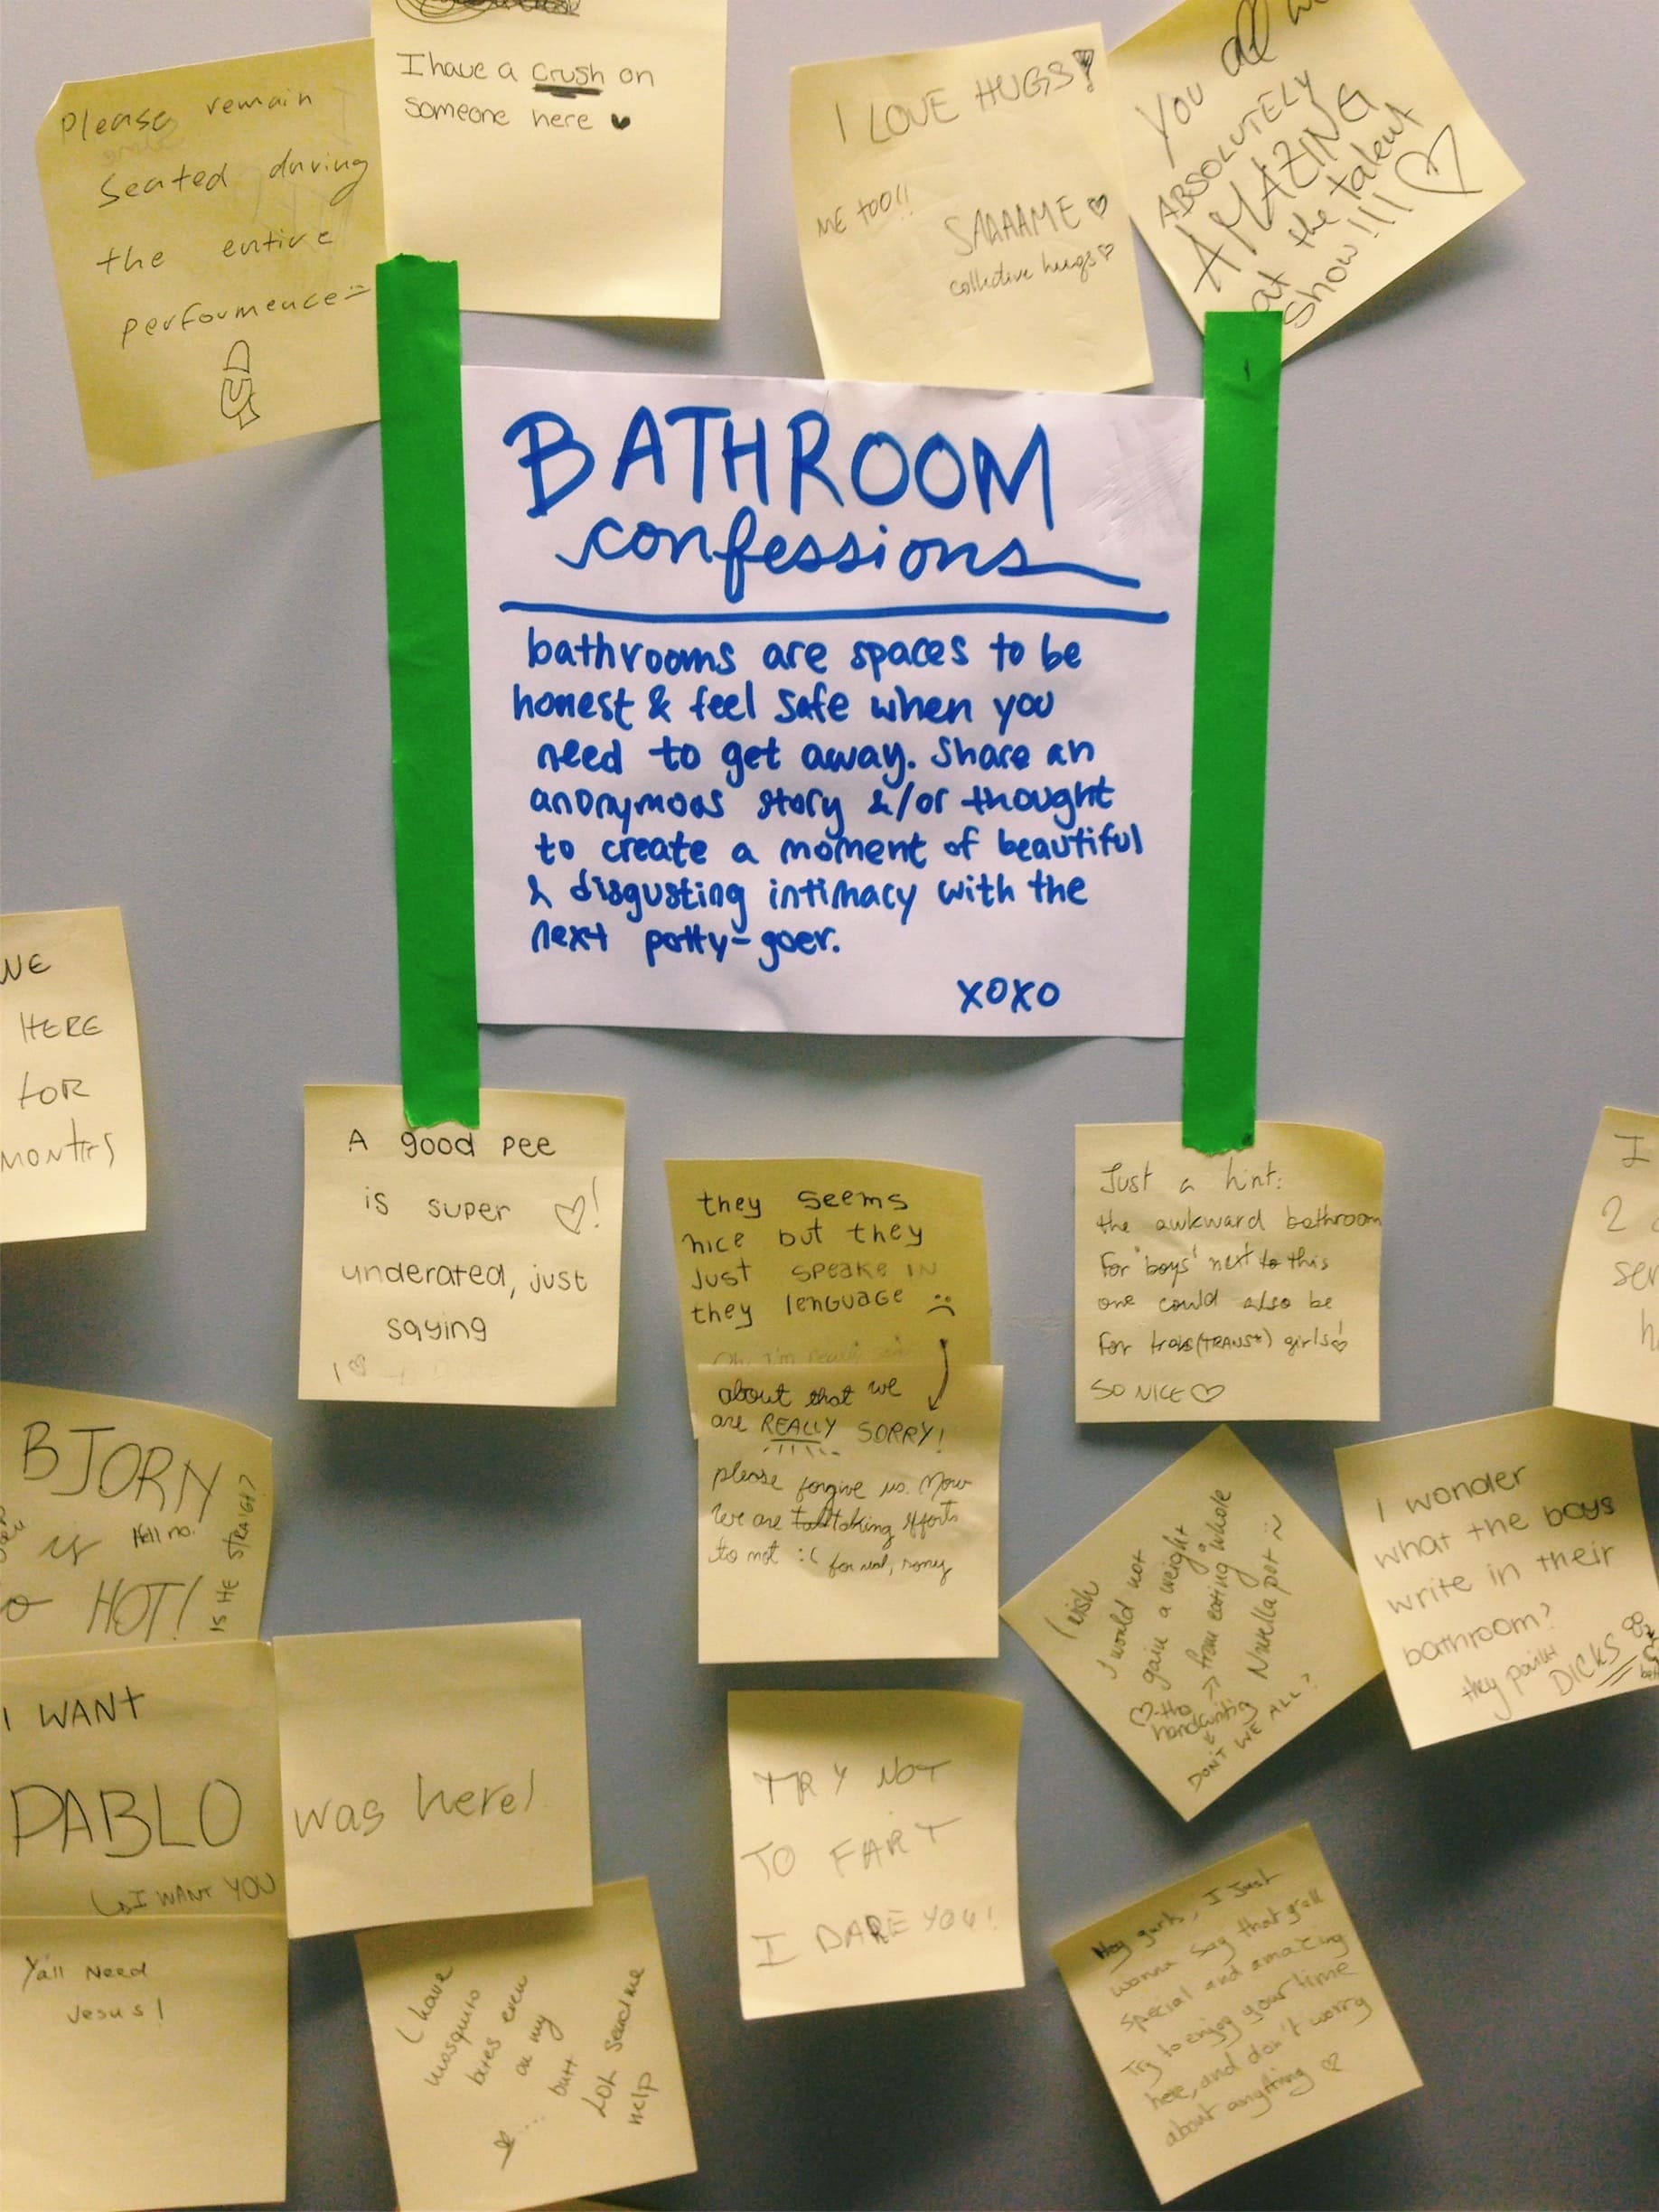 Please remain
seated during
the entire
performence
I have a crush on
someone here
I LOVE HUGS!
ME TOO!!
SAAAAME
collective hugs
You all
ABSOLUTELY
AMAZING
at the talent
show!!!!
BATHROOM
confessions
bathrooms are spaces to be
honest & feel safe when you
need to get away. Share an
anonymous story &/or thought
to create a moment of beautiful
& disgusting intimacy with the
next potty-goer.
xoxo
HERE
FOR
MONTHS
A good pee
is super
underated, just
saying
they seems
nice but they
just speake in
they lenguage :(
Oh, I'm really
about that we
are REALLY SORRY!
please forgive us. Now
we are taking efforts
to not :( for real, sorry
Just a hint:
the awkward bathroom
for 'boys' next to this
one could also be
for trans (TRANS*) girls!
SO NICE
I
2
BJORN
is
HOT!
Hell no.
IS HE STRAIGHT?
I wish
I would not
gain a weight
from eating whole
Nutella pot
the
handwriting
DON'T WE ALL?
I wonder
what the boys
write in their
bathroom?
they paint
DICKS
I WANT
PABLO
I WANT YOU
was here!
TRY NOT
TO FART
I DARE YOU!
Y'all Need
Jesus!
I have
mosquito
bites even
on my
butt
LOL send me
help
Hey gurls, I just
wanna say that y'all
special and amazing
Try to enjoy your time
here, and don't worry
about anything